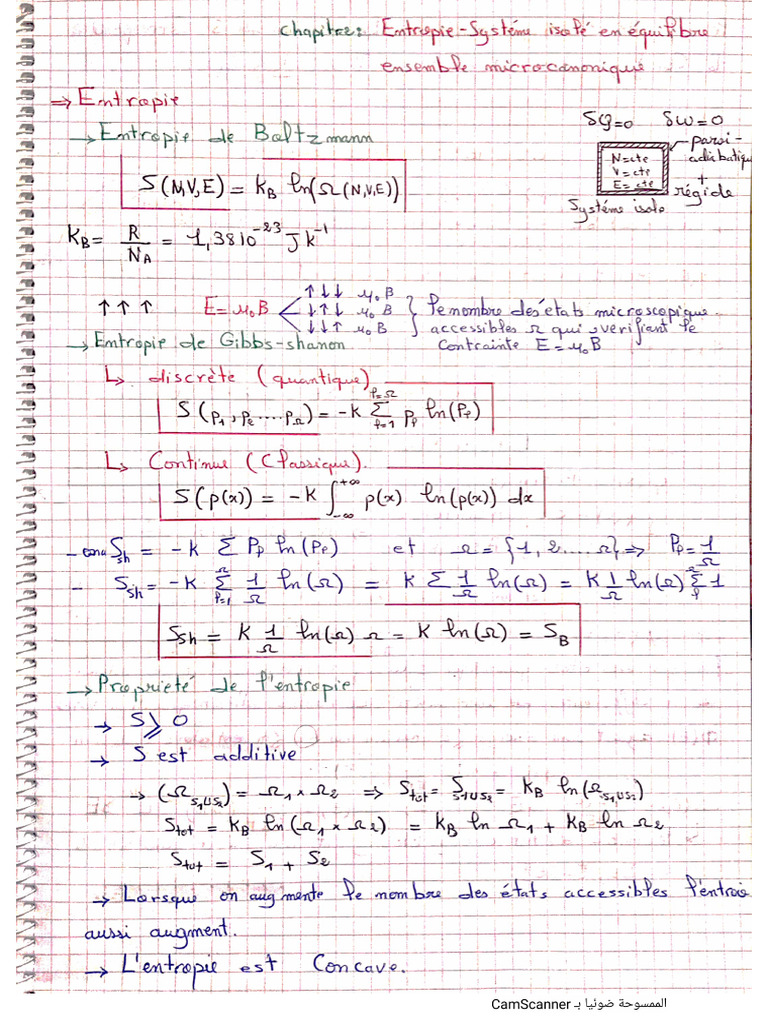 chapitre: Entropie-Système isolé en équilibre
ensemble microcanonique
⇒ Entropie
→ Entropie de Boltzmann
δQ=0 δW=0
paroi adiabatique + régide
N=cte
V=cte
E=cte
Système isolé
S(N,V,E) = k_B ln(Ω(N,V,E))
K_B = R/N_A = 1,38 10^-23 J k^-1
↑ ↑ ↑ E = μ₀B
↑↓↓ μ₀B
↓↑↓ μ₀B
↓↓↑ μ₀B
le nombre des états microscopique
accessibles Ω qui vérifiant le
contrainte E = μ₀B
→ Entropie de Gibbs-shanon
↳ discrète (quantique)
S(p₁, p₂ .... p_Ω) = -k Σ_{l=1}^{l=Ω} p_l ln(P_l)
↳ Continue (Classique).
S(p(x)) = -k ∫_{-∞}^{+∞} p(x) ln(p(x)) dx
- ona S_sh = -k Σ P_l ln(P_l) et Ω = {1, 2.... Ω} ⇒ P_l = 1/Ω
- S_sh = -k Σ_{l=1}^{Ω} 1/Ω ln(Ω) = k Σ 1/Ω ln(Ω) = k 1/Ω ln(Ω) Σ_l^Ω 1
S_sh = k 1/Ω ln(Ω) Ω = k ln(Ω) = S_B
→ Proprieté de l'entropie
→ S ⩾ 0
→ S est additive
→ (Ω_{S1US2}) = Ω₁ × Ω₂ ⇒ S_tot = S_{S1US2} = k_B ln(Ω_{S1US2})
S_tot = k_B ln(Ω₁ × Ω₂) = k_B ln Ω₁ + k_B ln Ω₂
S_tot = S₁ + S₂
→ Lorsque on augmente le nombre des états accessibles l'entroie
aussi augment.
→ L'entropie est Concave.
الممسوحة ضوئيا بـ CamScanner